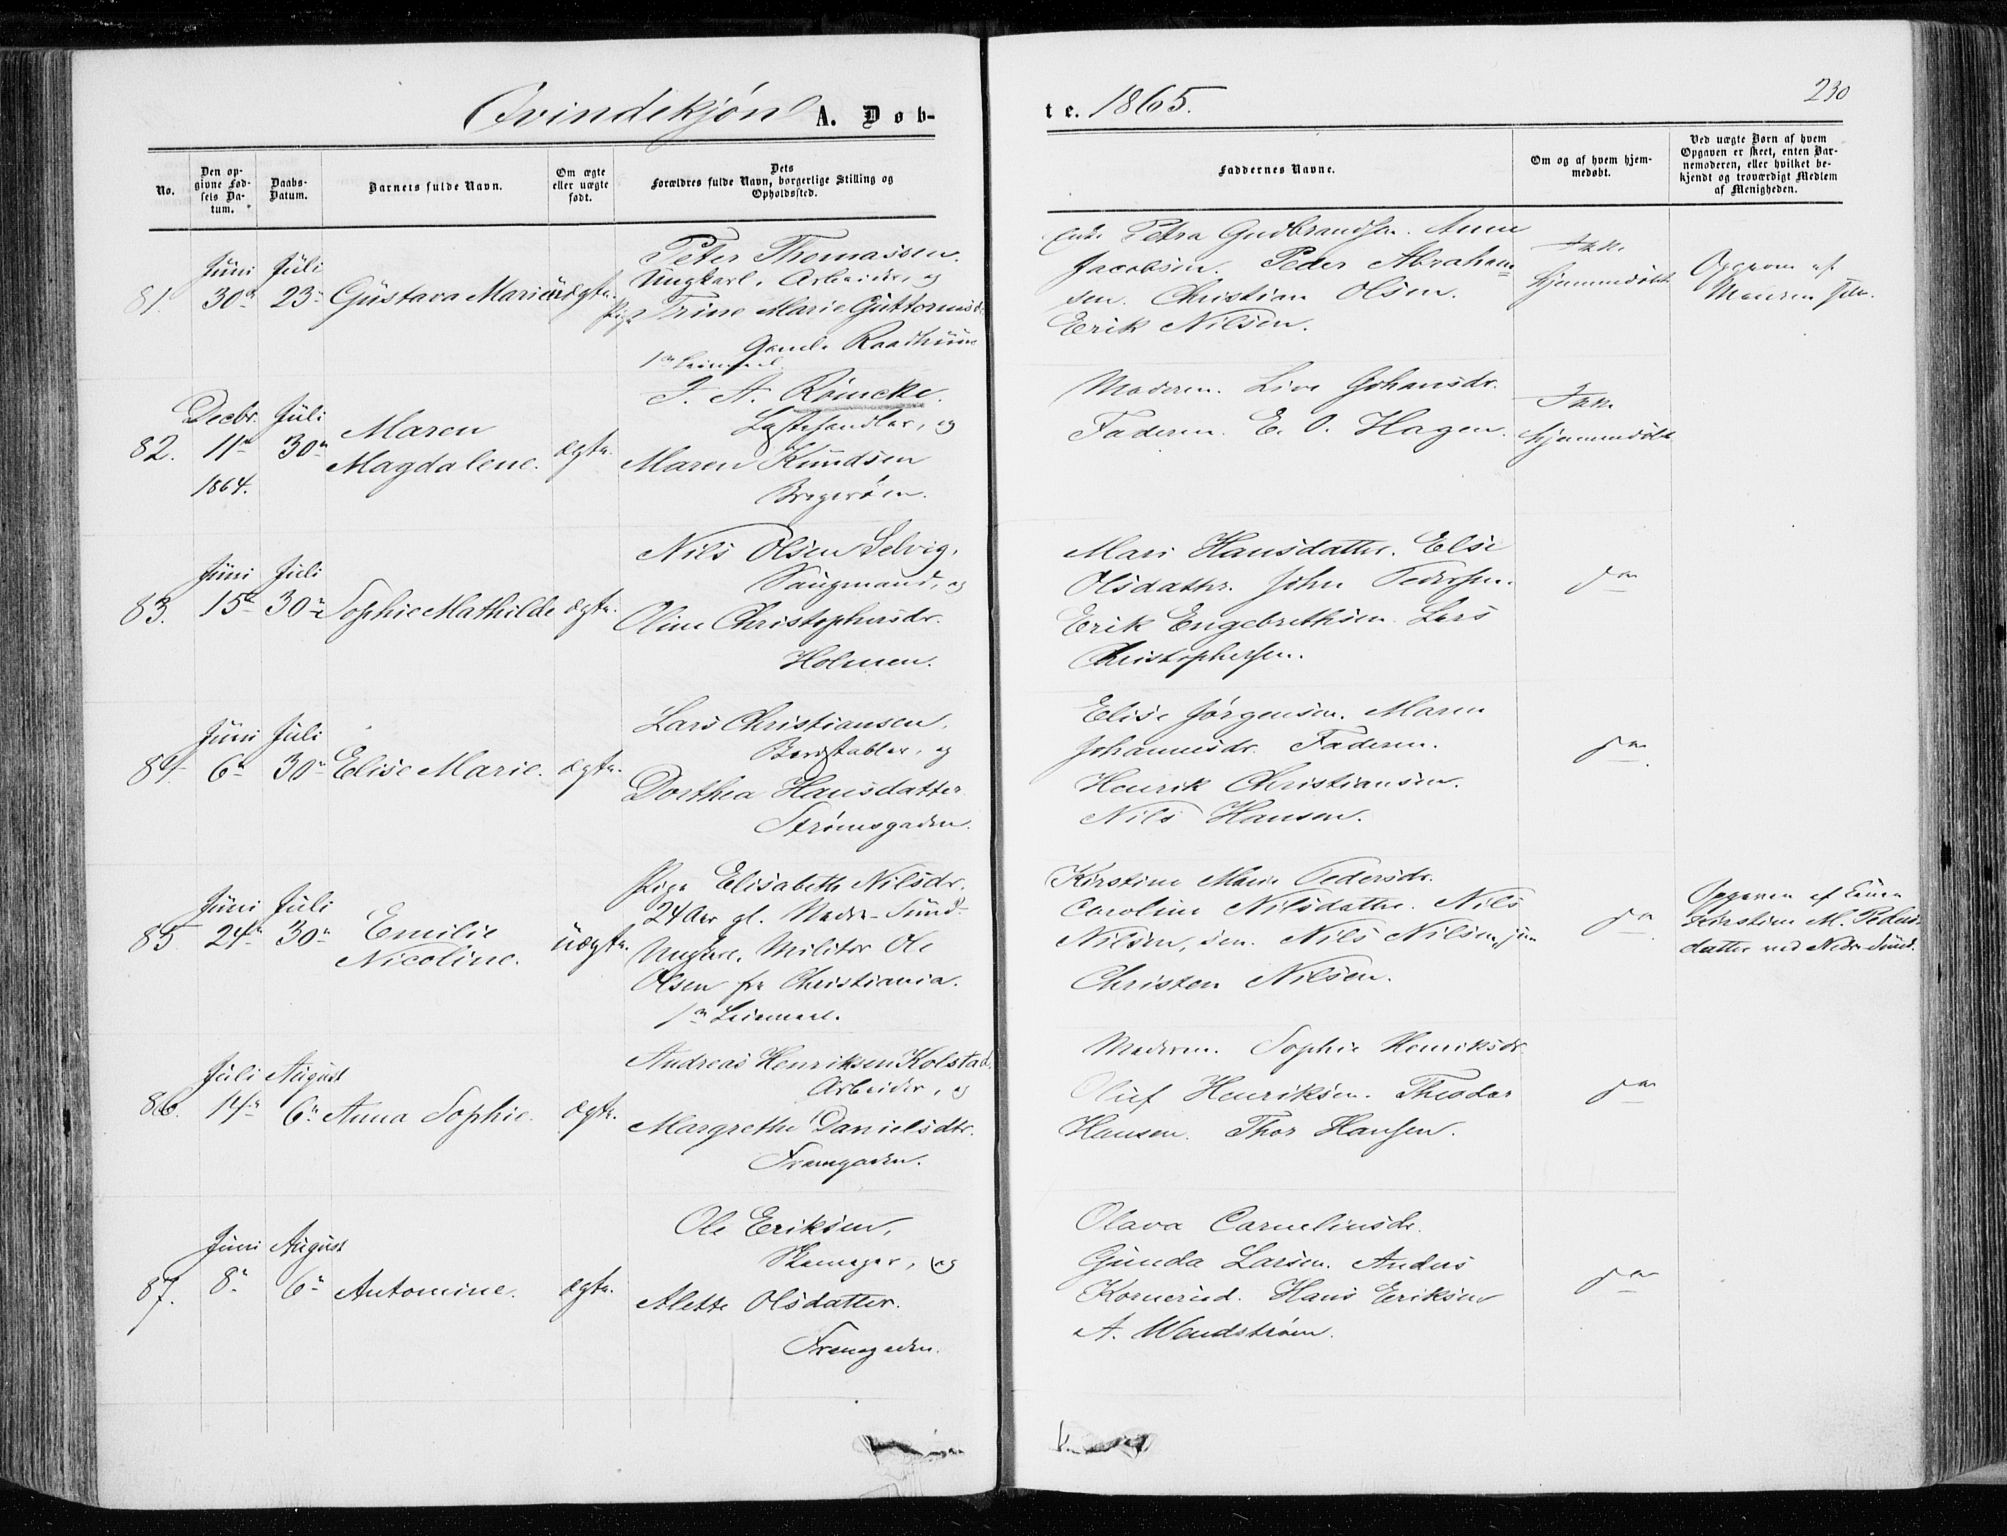 Qvindekjøn A. Døb-
No.
Den op-
givne Fød-
sels Da-
tum.
Daabs-
Datum.
Barnets fulde Navn.
Om ægte
eller uægte
født.
Dets
Forældres fulde Navn, borgerlige Stilling og
Opholdssted.
81.
Juni
30te
Juli
23de
Gustava Marie
uægte.
Peter Thomassen.
Ungkarl, Arbeider, og
Pige Trine Marie Guttormsdr
Gamle Raadhuus
1ste Leiermaal.
82.
Decbr.
11te
1864.
Juli
30te
Maren
Magdalene.
ægte.
J. A. Römcke.
Lastehandler, og
Maren Knudsen
Bragerøen.
83.
Juni
15de
Juli
30te
Sophie Mathilde
ægte.
Nils Olsen Selvig.
Saugmand, og
Oline Christophersdr.
Holmen.
84
Juni
6te
Juli
30te
Elise Marie.
ægte.
Lars Christiansen.
Bordstabler, og
Dorthea Hansdatter
Strömsgaden.
85
Juni
24de
Juli
30te
Emilie
Nicoline.
uægte.
Pige Elisabeth Nilsdr.
24 Aar gl. Nedre-Sund.
Ungkarl, Militær Ole
Olsen fra Christiania.
1ste Leiermaal.
86.
Juli
14de
August
6te
Anna Sophie.
ægte.
Andreas Henriksen Kolstad,
Arbeider, og
Margrethe Danielsdtr.
Framgaden.
87.
Juni
8de
August
6te
Antomine.
ægte.
Ole Eriksen,
Skomager, og
Alette Olsdatter.
Framgaden.
te. 1865.
230
Faddernes Navne.
Om og af hvem hjem-
medøbt.
Ved uægte Børn af hvem
Opgaven er skeet, enten Bar-
nemoderen, eller hvilket be-
kjendt og troværdigt Medlem
af Menigheden.
Enke Petra Gudbrandsen. Anne
Jacobsen. Peder Abraham=
sen. Christian Olsen.
Erik Nilsen.
Ikke
hjemmedøbt
Opgaven af
Manden selv.
Moderen. Live Johansdr.
Faderen. E. O. Hagen.
Ikke
hjemmedøbt
Mari Hansdatter. Else
Olsdatter. John Pedersen.
Erik Engebrethsen. Lars
Christophersen.
do
Elise Jörgensen. Maren
Johannesdr. Faderen.
Henrik Christiansen.
Nils Hansen.
do
Kirstine Marie Pedersdr.
Caroline Nilsdatter. Nils
Nilsen, sen. Nils Nilsen, jun
Christen Nilsen.
do
Opgaven af Enken
Kirstine M. Peders
datter ved Nedre-Sund.
Moderen. Sophie Henriksdr
Oluf Henriksen. Theodor
Hansen. Thor Hansen.
do
Olava Corneliusdr.
Gunda Larsen. Anders
Kornerud. Hans Eriksen
A. Wendström.
do